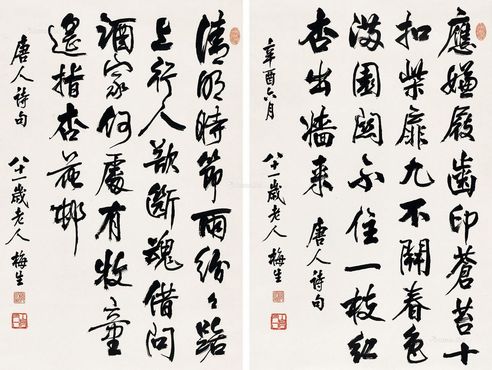 應嫌屐齒印蒼苔十
扣柴扉九不開春色
滿園關不住一枝紅
杏出牆來 唐人詩句
辛酉六月 八十一歲老人梅生
清明時節雨紛々路
上行人欲斷魂借問
酒家何處有牧童
遙指杏花邨
唐人詩句 八十一歲老人梅生